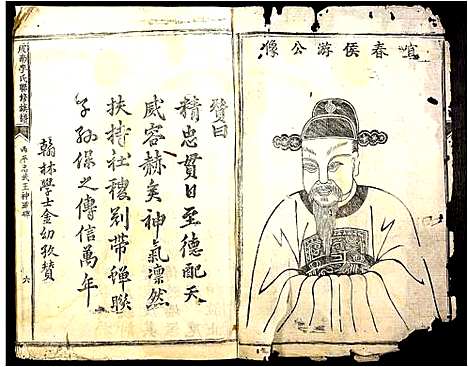 宜春侯游公像
贊曰
精忠貫日至德配天
威容赫奕神氣凜然
扶持社稷列帶蟬聯
子孫保之傳信萬年
翰林學士金幼孜贊
李氏聯修族譜
西平忠武王神道碑
六